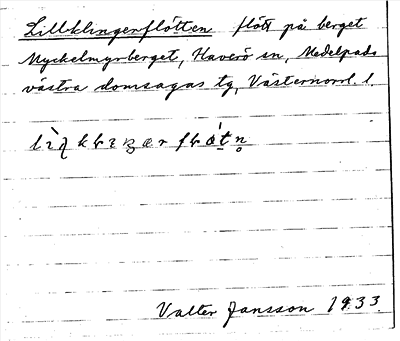 Lillklingerflötten flött på berget
Myckelmyrberget, Haverö sn, Medelpads
västra domsagas tg, Västernorrl. l.
Valter Jansson 1933